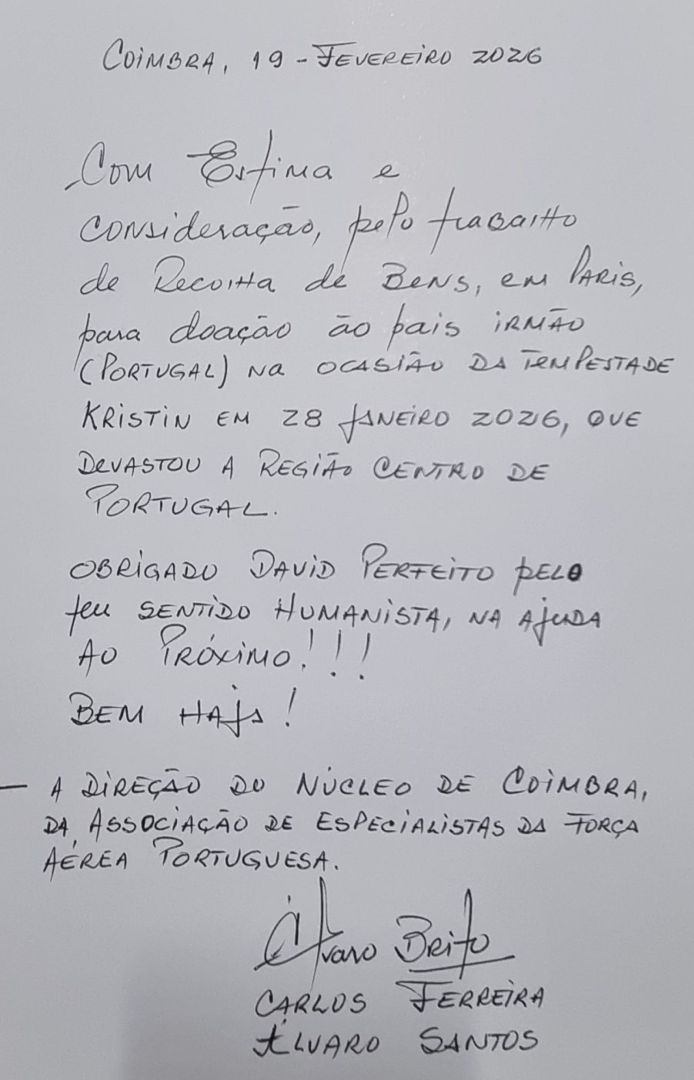 COIMBRA, 19 - FEVEREIRO 2026
Com Estima e
consideração, pelo trabalho
de Recolha de Bens, em PARIS,
para doação ão pais irmão
(PORTUGAL) NA OCASIÃO DA TEMPESTADE
KRISTIN EM 28 JANEIRO 2026, QUE
DEVASTOU A REGIÃO CENTRO DE
PORTUGAL.
OBRIGADO DAVID PERFEITO PELO
teu SENTIDO HUMANISTA, NA AJUDA
AO PRÓXIMO!!!
BEM HAJA!
— A DIREÇÃO DO NÚCLEO DE COIMBRA,
DA ASSOCIAÇÃO DE ESPECIALISTAS DA FORÇA
AÉREA PORTUGUESA.
Álvaro Brito
CARLOS FERREIRA
ÁLVARO SANTOS